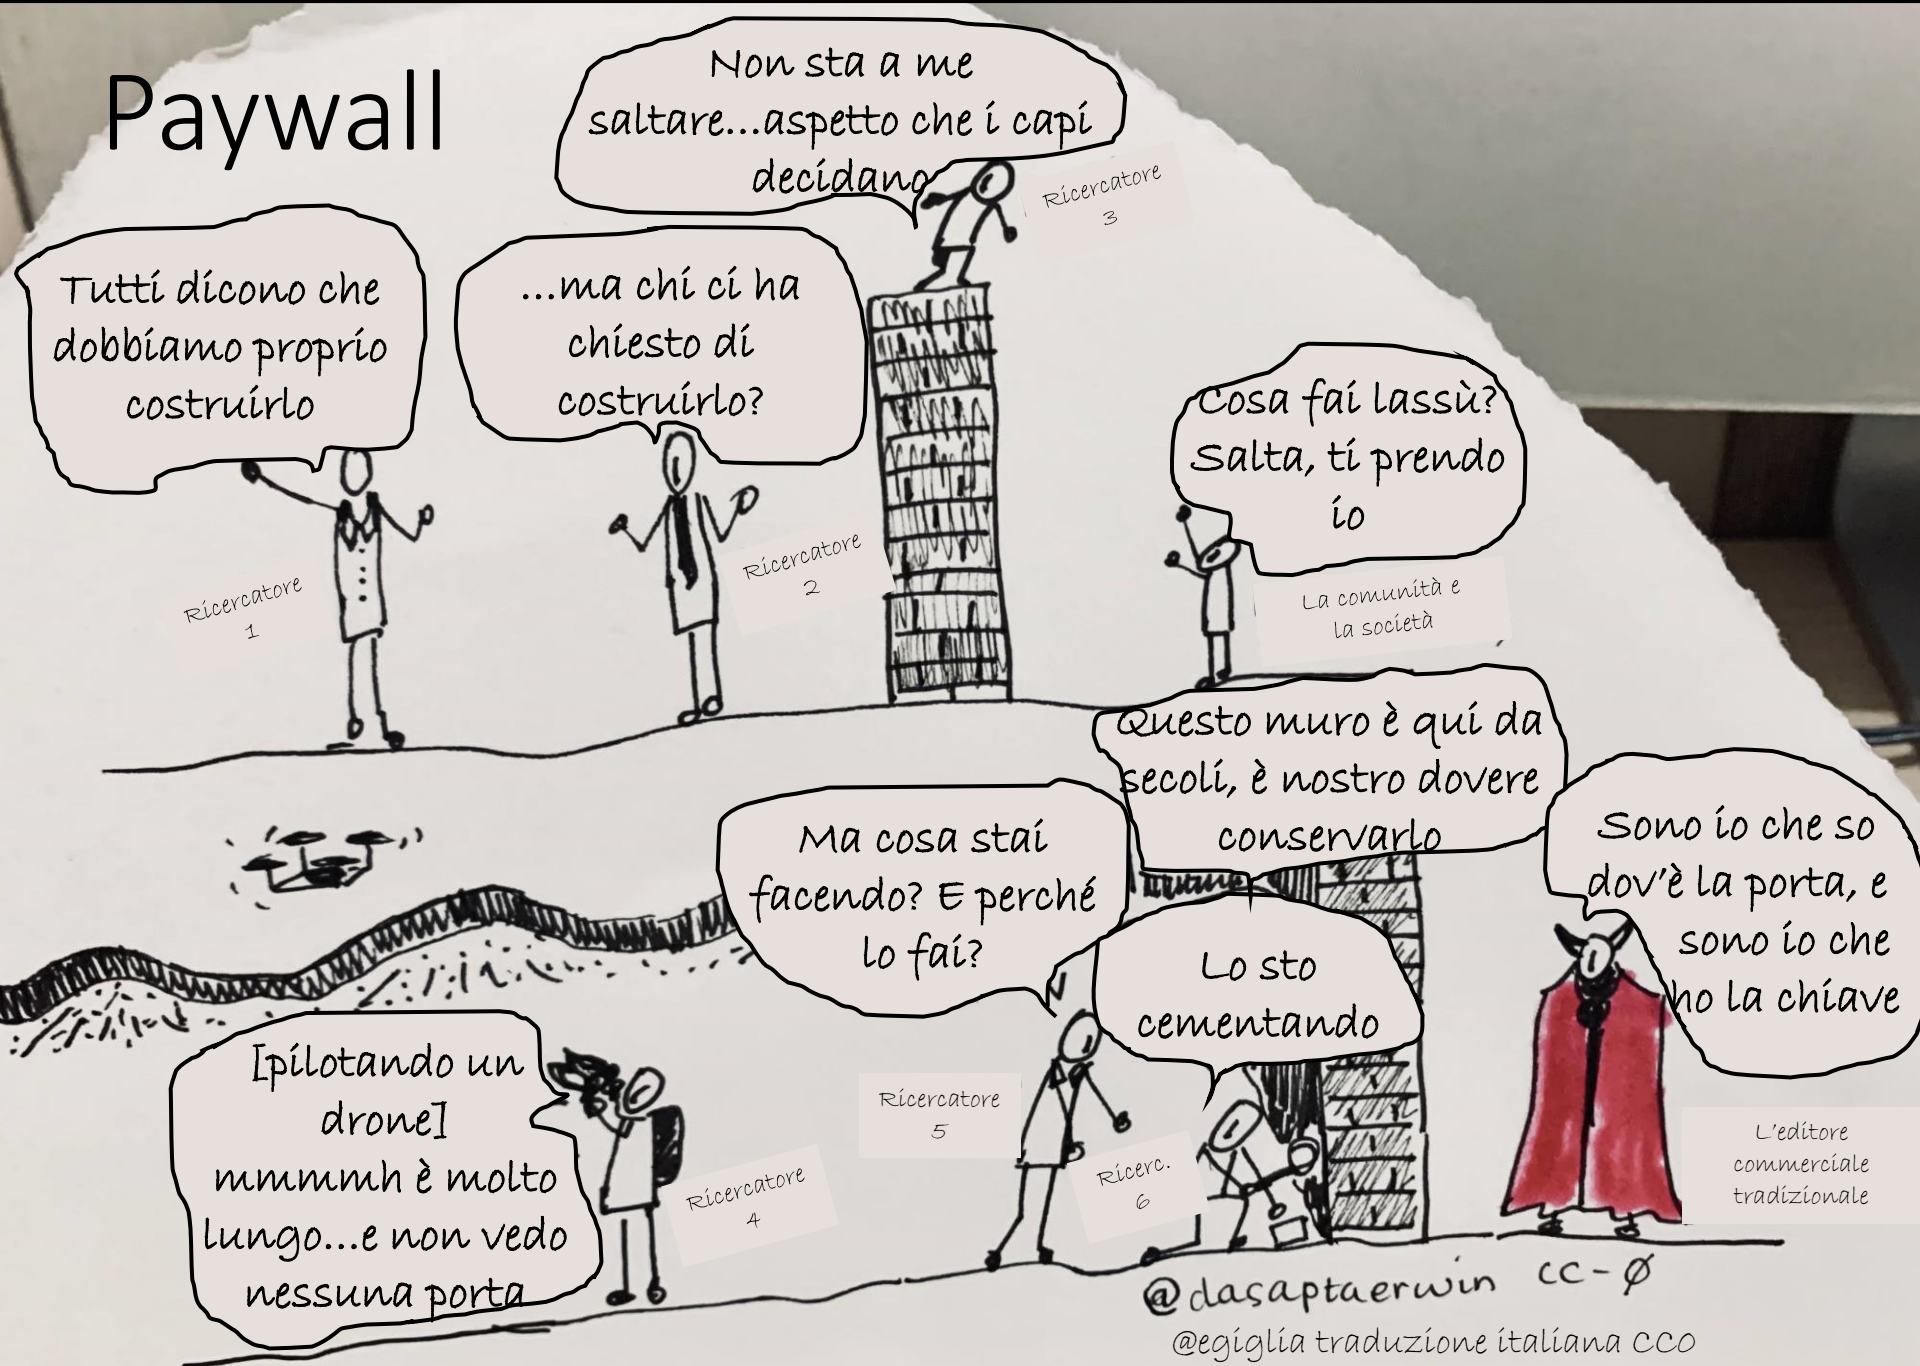 Paywall
Non sta a me
saltare...aspetto che i capi
decidano
Ricercatore
3
Tutti dicono che
dobbiamo proprio
costruirlo
...ma chi ci ha
chiesto di
costruirlo?
Cosa fai lassù?
Salta, ti prendo
io
Ricercatore
1
Ricercatore
2
La comunità e
la società
Questo muro è qui da
secoli, è nostro dovere
conservarlo
Ma cosa stai
facendo? E perché
lo fai?
Sono io che so
dov'è la porta, e
sono io che
ho la chiave
Lo sto
cementando
[pilotando un
drone]
mmmmh è molto
lungo...e non vedo
nessuna porta
Ricercatore
4
Ricercatore
5
Ricerc.
6
L'editore
commerciale
tradizionale
@dasaptaerwin CC-Ø
@egiglia traduzione italiana CC0